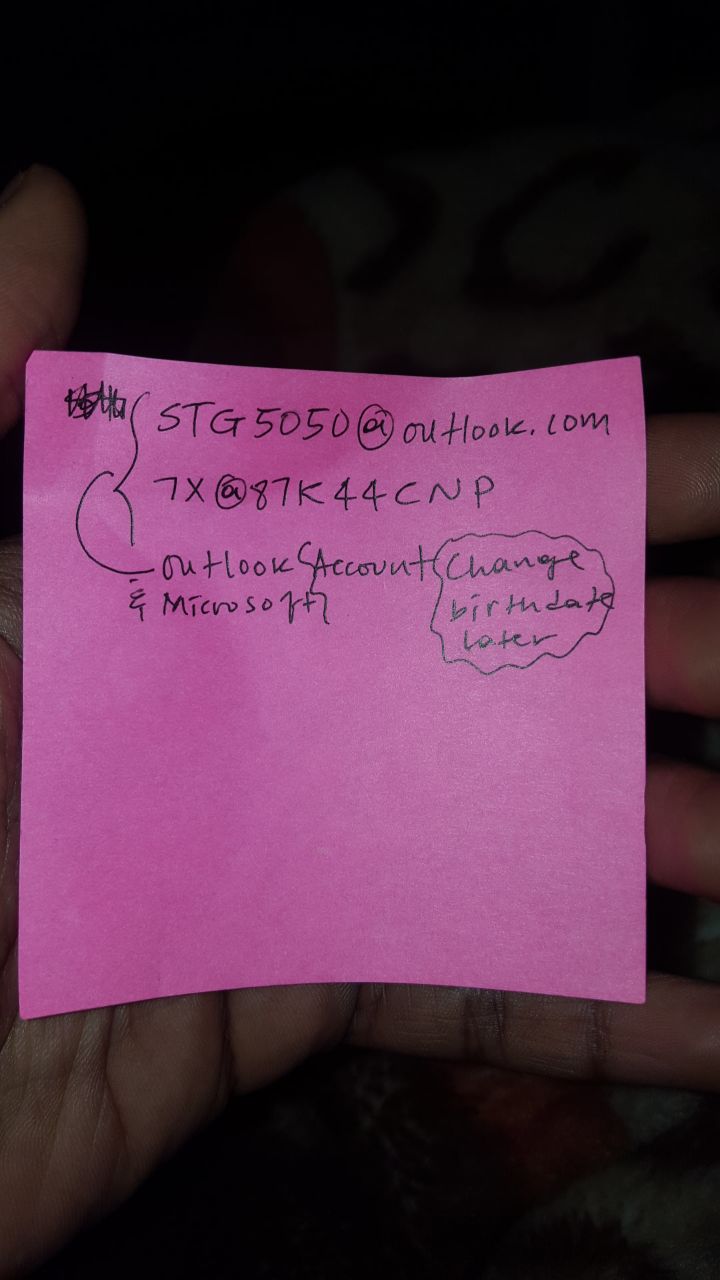 STG5050@outlook.com
7X@87K44CNP
outlook {Account
& Microsoft}
Change
birthdate
later